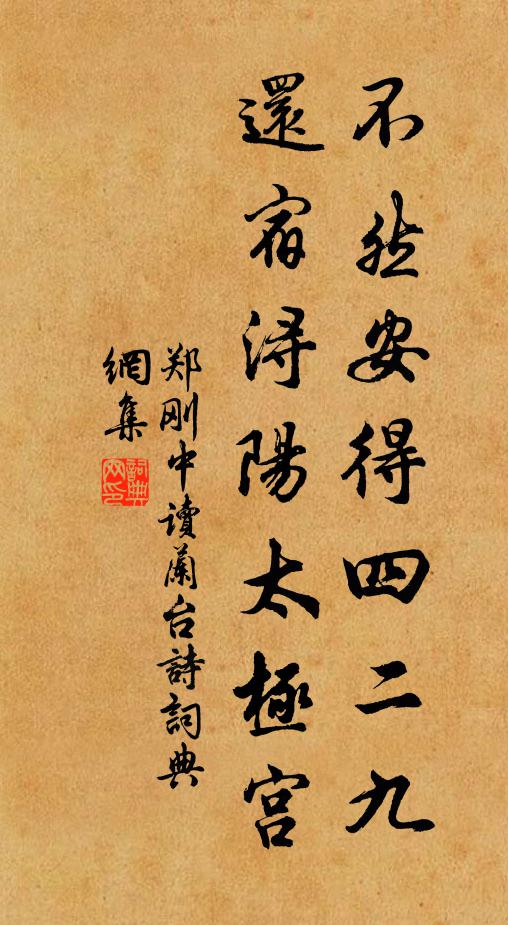 不然安得四二九
還宿潯陽太極宮
郑刚中讀蘭台詩詞典
網集
詞典網印